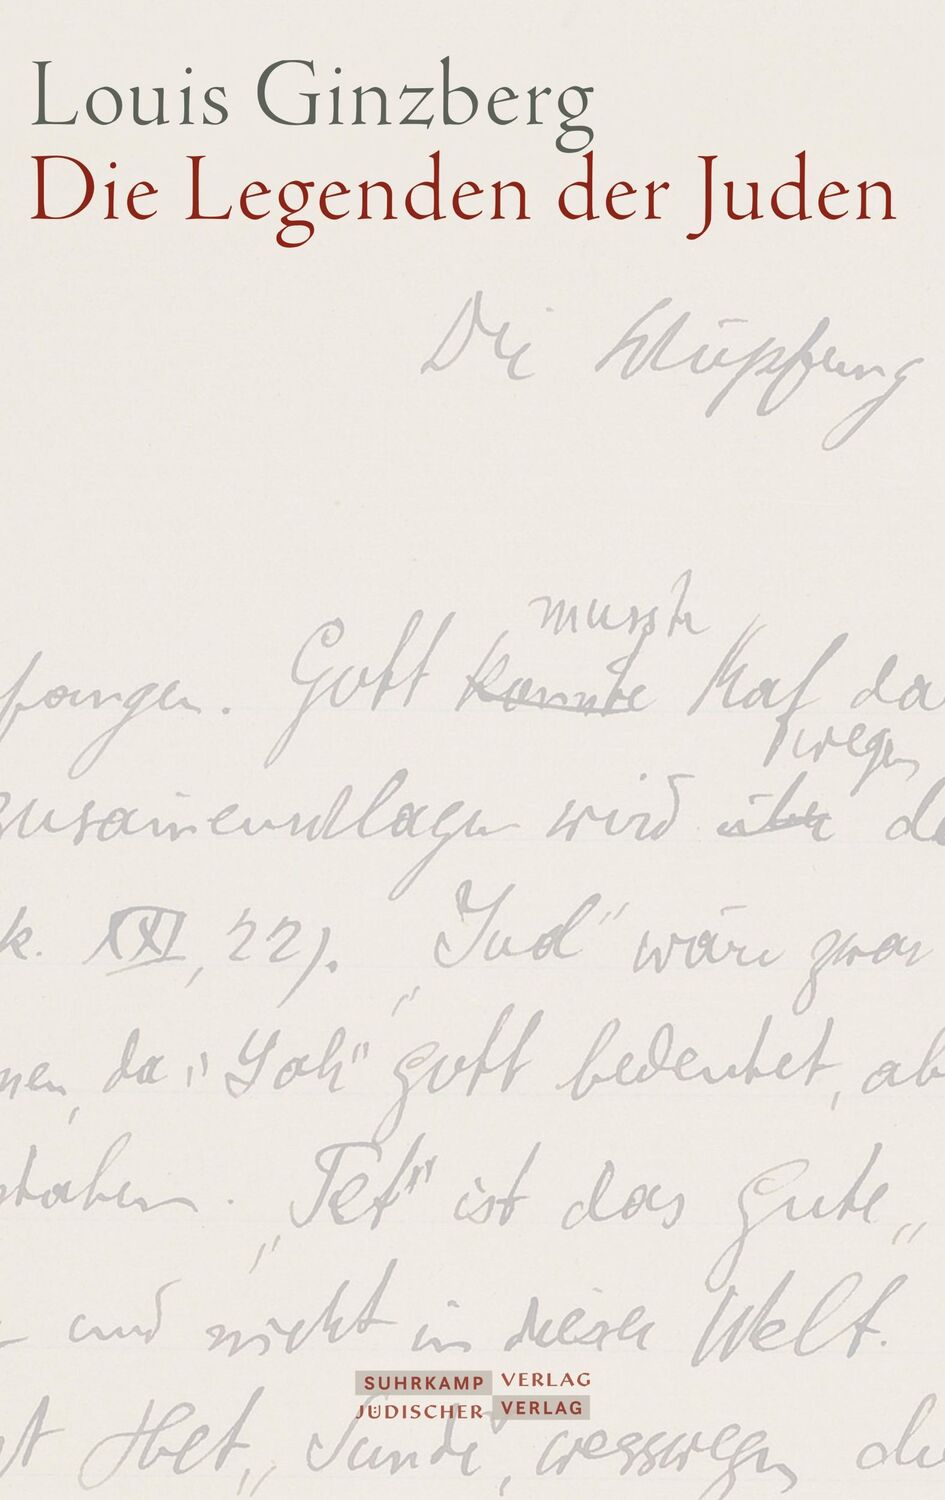 Louis Ginzberg
Die Legenden der Juden
Die Schöpfung
musste
fangen. Gott konnte Kaf da
wegen
zusammenschlagen wird über de
k. XXI, 22). „Jud“ wäre zwar
nen, da „Yah“ Gott bedeutet, ab
staben. „Tet“ ist das Gute„
und nicht in dieser Welt.
SUHRKAMP VERLAG
JÜDISCHER VERLAG
st Het, „Sünde, wesswegen du